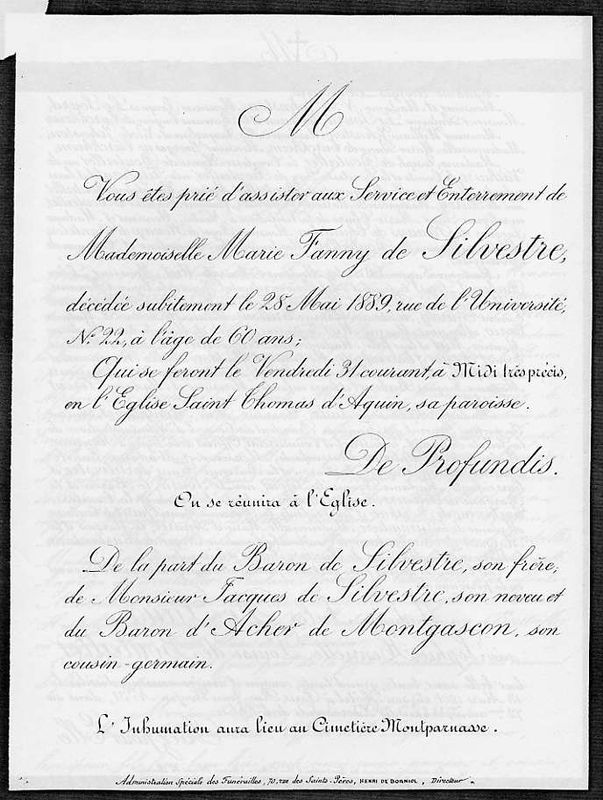 M
Vous êtes prié d'assister aux Service et Enterrement de
Mademoiselle Marie Fanny de Silvestre,
décédée subitement le 28 Mai 1889, rue de l'Université,
N° 22, à l'âge de 60 ans;
Qui se feront le Vendredi 31 courant, à Midi très précis,
en l'Eglise Saint Thomas d'Aquin, sa paroisse.
De Profundis.
On se réunira à l'Eglise.
De la part du Baron de Silvestre, son frère,
de Monsieur Jacques de Silvestre, son neveu et
du Baron d'Acher de Montgascon, son
cousin-germain.
L'Inhumation aura lieu au Cimetière Montparnasse.
Administration Spéciale des Funérailles, 70, rue des Saints-Pères, HENRI DE BORNIOL, Directeur.